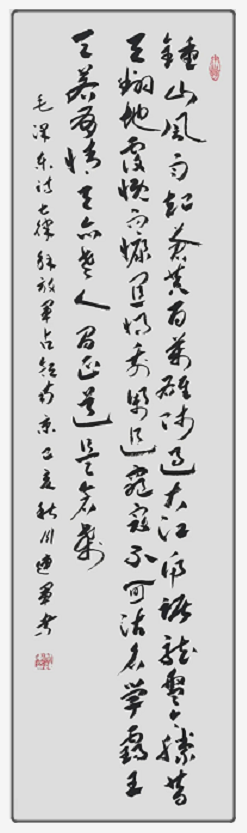 鍾山風雨起蒼黄百萬雄师过大江虎踞龙盤今勝昔
天翻地覆慨而慷宜将剩勇追窮寇不可沽名学霸王
天若有情天亦老人间正道是滄桑
毛泽东诗七律解放军占领南京己亥秋